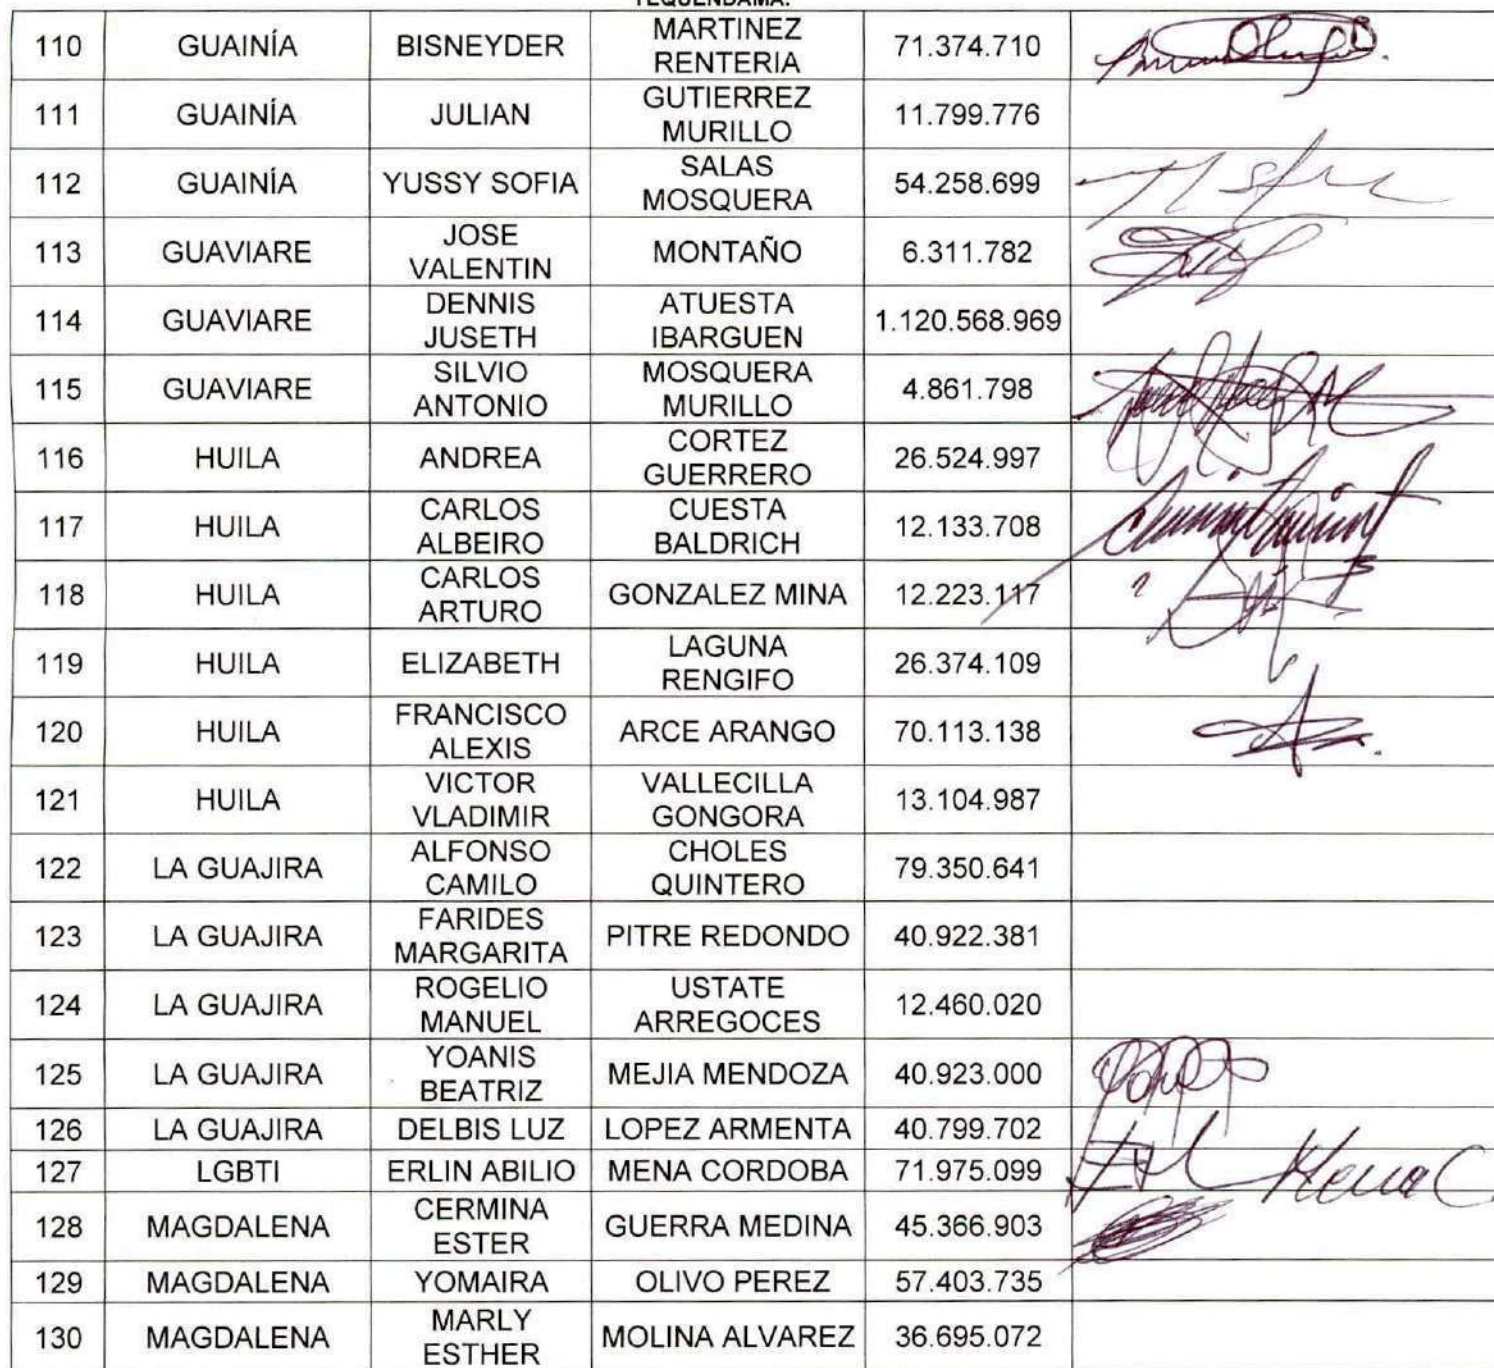 TEQUENDAMA.
110 GUAINÍA BISNEYDER MARTINEZ RENTERIA 71.374.710
111 GUAINÍA JULIAN GUTIERREZ MURILLO 11.799.776
112 GUAINÍA YUSSY SOFIA SALAS MOSQUERA 54.258.699
113 GUAVIARE JOSE VALENTIN MONTAÑO 6.311.782
114 GUAVIARE DENNIS JUSETH ATUESTA IBARGUEN 1.120.568.969
115 GUAVIARE SILVIO ANTONIO MOSQUERA MURILLO 4.861.798
116 HUILA ANDREA CORTEZ GUERRERO 26.524.997
117 HUILA CARLOS ALBEIRO CUESTA BALDRICH 12.133.708
118 HUILA CARLOS ARTURO GONZALEZ MINA 12.223.117
119 HUILA ELIZABETH LAGUNA RENGIFO 26.374.109
120 HUILA FRANCISCO ALEXIS ARCE ARANGO 70.113.138
121 HUILA VICTOR VLADIMIR VALLECILLA GONGORA 13.104.987
122 LA GUAJIRA ALFONSO CAMILO CHOLES QUINTERO 79.350.641
123 LA GUAJIRA FARIDES MARGARITA PITRE REDONDO 40.922.381
124 LA GUAJIRA ROGELIO MANUEL USTATE ARREGOCES 12.460.020
125 LA GUAJIRA YOANIS BEATRIZ MEJIA MENDOZA 40.923.000
126 LA GUAJIRA DELBIS LUZ LOPEZ ARMENTA 40.799.702
127 LGBTI ERLIN ABILIO MENA CORDOBA 71.975.099 Mena C
128 MAGDALENA CERMINA ESTER GUERRA MEDINA 45.366.903
129 MAGDALENA YOMAIRA OLIVO PEREZ 57.403.735
130 MAGDALENA MARLY ESTHER MOLINA ALVAREZ 36.695.072